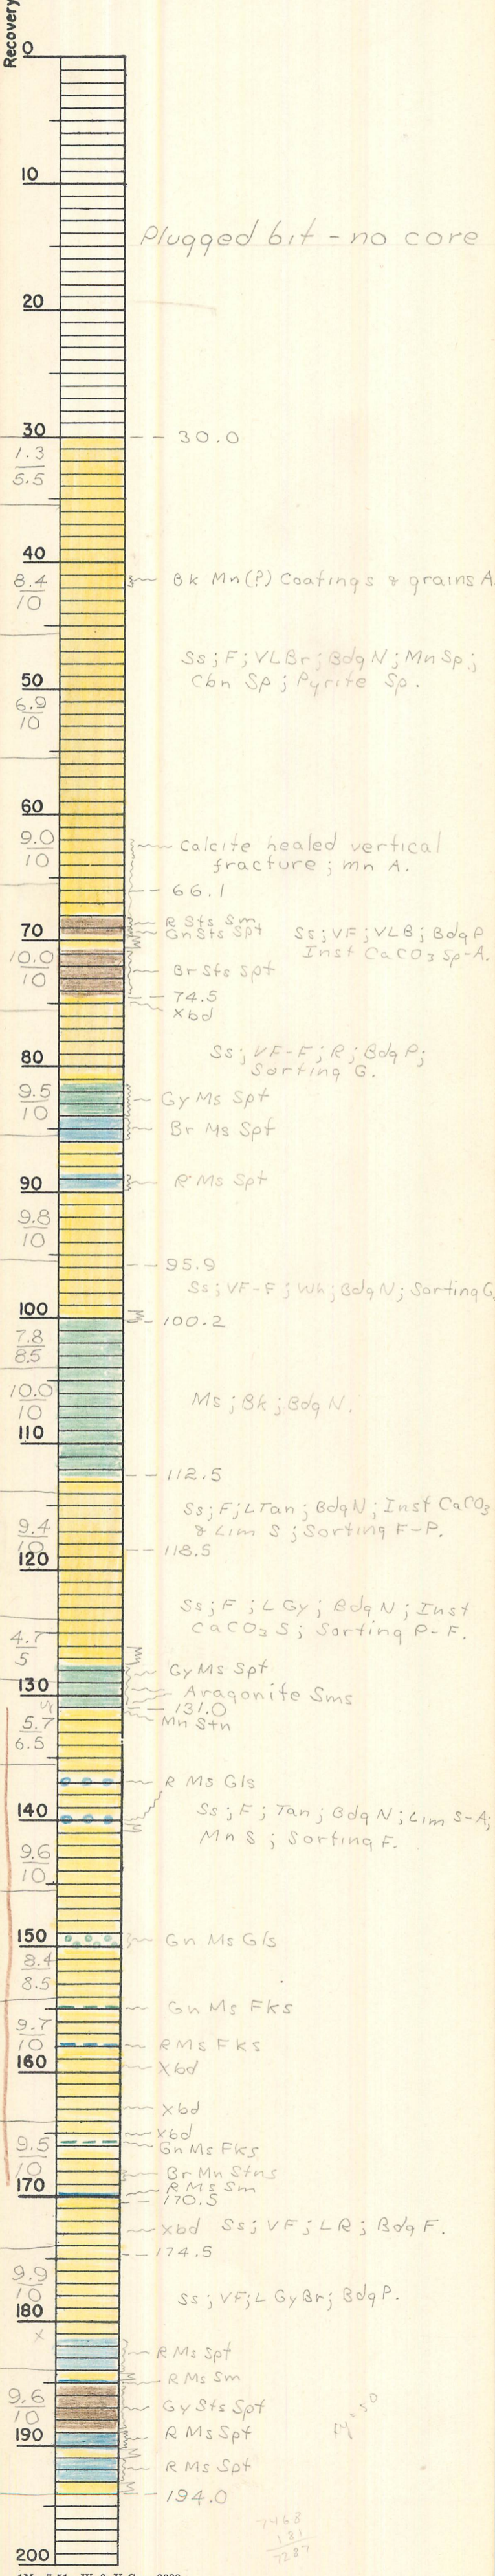 Recovery
0
10
Plugged bit - no core
20
30 -- 30.0
1.3
5.5
40
8.4
10
Bk Mn(?) Coatings & grains A
Ss; F; VLBr; Bdg N; Mn Sp;
Cbn Sp; Pyrite Sp.
50
6.9
10
60
9.0
10
Calcite healed vertical
fracture; mn A.
-- 66.1
R Sts Sm
Gn Sts Spt
Ss; VF; VLB; Bdg P
Inst CaCO3 Sp-A.
70
10.0
10
Br Sts Spt
-- 74.5
Xbd
Ss; VF-F; R; Bdg P;
Sorting G.
80
9.5
10
Gy Ms Spt
Br Ms Spt
R Ms Spt
90
9.8
10
-- 95.9
Ss; VF-F; Wh; Bdg N; Sorting G.
100
-- 100.2
7.8
8.5
10.0
10
Ms; Bk; Bdg N.
110
-- 112.5
Ss; F; LTan; Bdg N; Inst CaCO3
& Lim S; Sorting F-P.
9.4
10
-- 118.5
120
Ss; F; L Gy; Bdg N; Inst
CaCO3 S; Sorting P-F.
4.7
5
Gy Ms Spt
130
Aragonite Sms
-- 131.0
Mn Stn
5.7
6.5
R Ms Gls
140
Ss; F; Tan; Bdg N; Lim S-A;
Mn S; Sorting F.
9.6
10
150
Gn Ms Gls
8.4
8.5
Gn Ms Fks
9.7
10
R Ms Fks
160
Xbd
Xbd
Xbd
Gn Ms Fks
9.5
10
Br Mn Stns
170
R Ms Sm
-- 170.5
Xbd Ss; VF; LR; Bdg F.
-- 174.5
9.9
10
Ss; VF; L GyBr; Bdg P.
180
x
R Ms Spt
R Ms Sm
9.6
10
Gy Sts Spt
190
R Ms Spt
R Ms Spt
-- 194.0
7468
181
7287
200